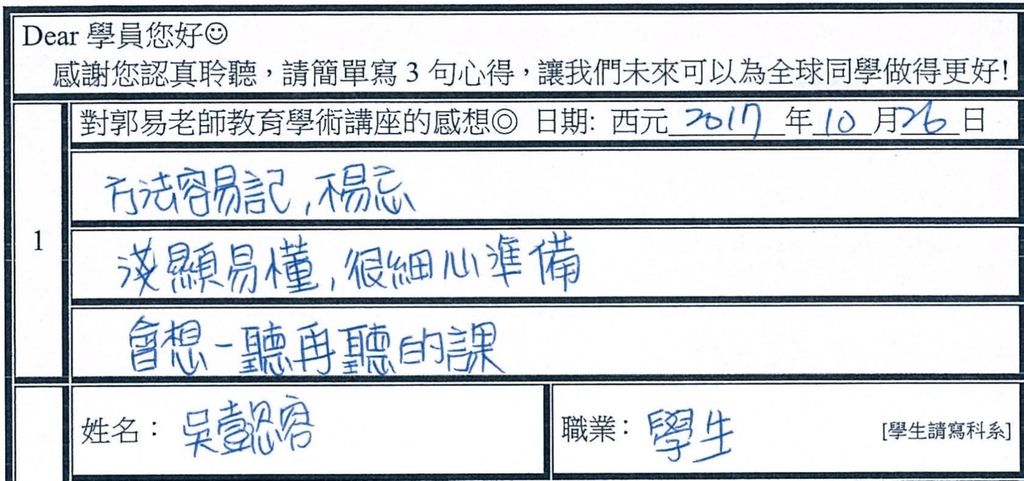 Dear 學員您好☺
感謝您認真聆聽，請簡單寫 3 句心得，讓我們未來可以為全球同學做得更好!
對郭易老師教育學術講座的感想◎ 日期: 西元 2017 年 10 月 26 日
1
方法容易記,不易忘
淺顯易懂,很細心準備
會想一聽再聽的課
姓名： 吳懿容
職業： 學生 [學生請寫科系]